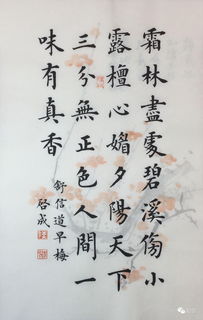 霜林盡處碧溪傍小
露檀心媚夕陽天下
三分無正色人間一
味有真香
舒信道早梅
啓成